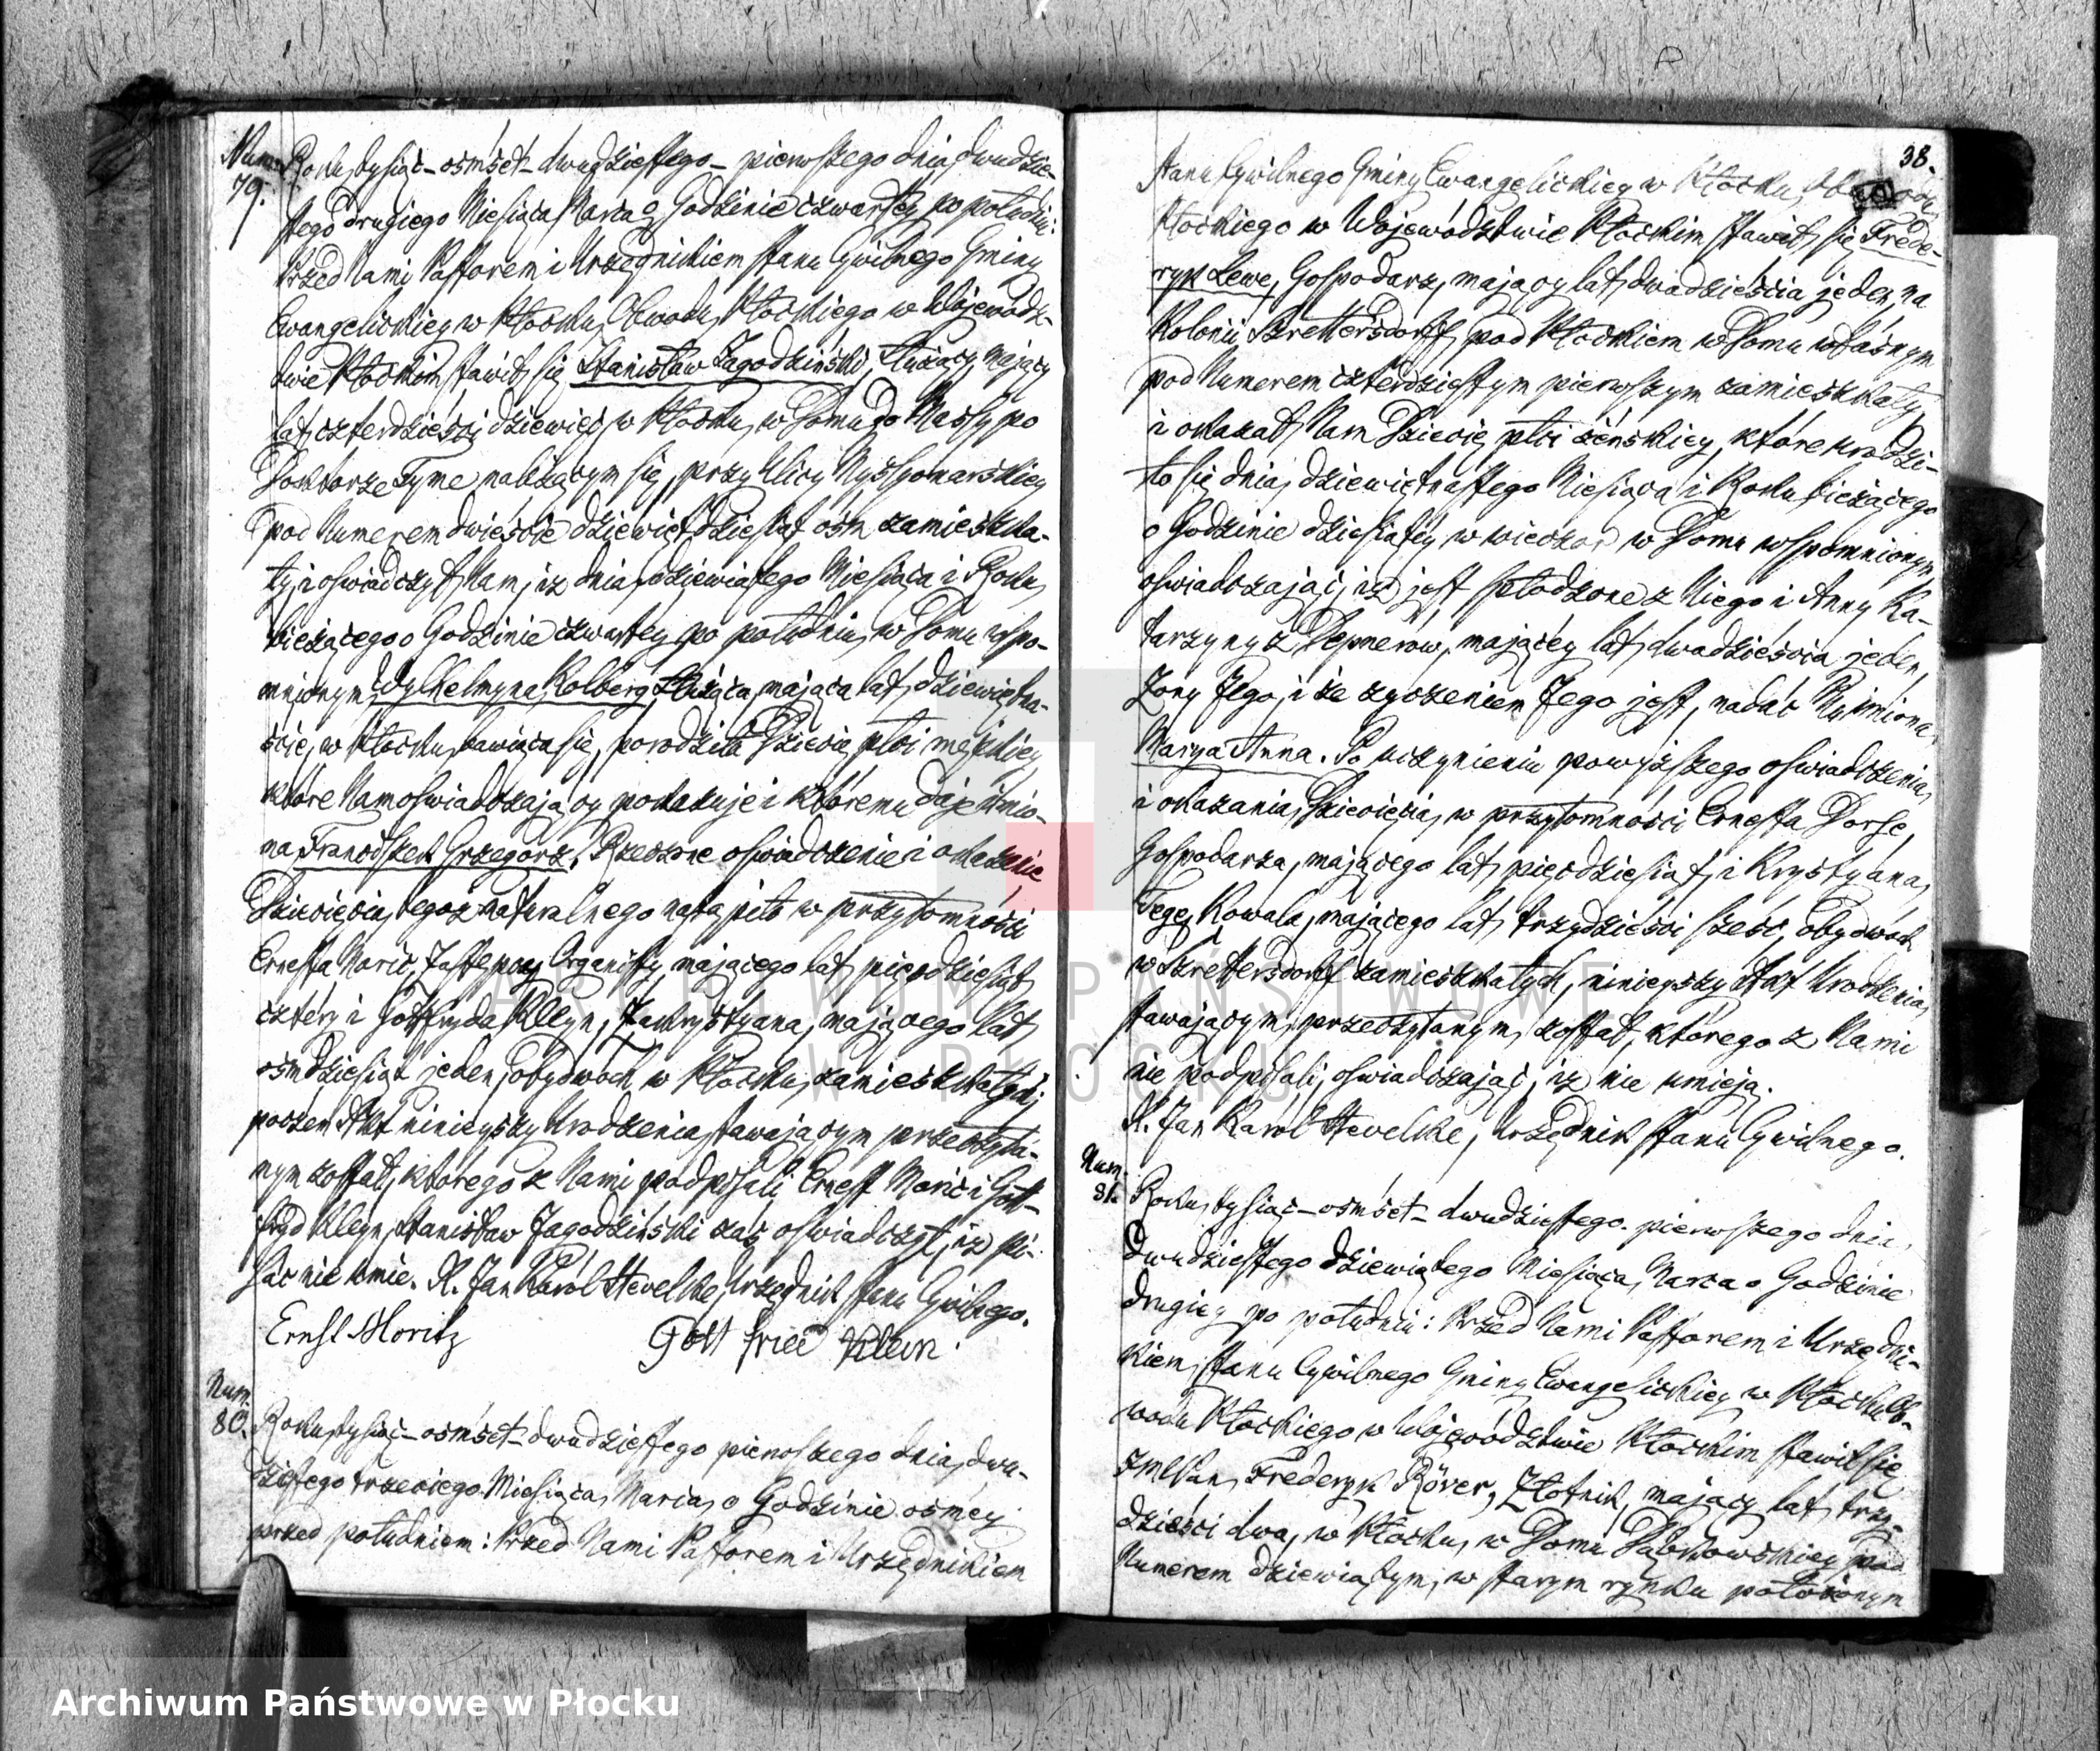 Num.
79.
Roku tysiąc-ośmset-dwudziestego-pierwszego dnia dwudzie-
stego drugiego Miesiąca Marca o Godzinie czwartey po południu:
Przed Nami Pastorem i Urzędnikiem stanu Cywilnego Gminy
Ewangelickiey w Płocku, Obwodu Płockiego w Wojewódz-
twie Płockim stawił się Stanisław Jagodziński, służący, mający
lat czterdzieści dziewięć w Płocku, w Domu do Massy po
Doktorze Tyme należącym się, przy Ulicy
pod Numerem dwieście dziewięćdziesiąt ośm zamieszka-
ły, i oświadczył Nam, iż dnia dziewiątego Miesiąca i Roku
bieżącego o Godzinie czwartey po południu, w Domu wspo-
mnionym, Wylhelmyna Kolberg służąca, mająca lat dziewiętna-
ście, w Płocku bawiąca się, porodziła Dziecię płci męzkiey
które Nam oświadczający pokazuje i któremu daje imio-
na Franciszek Grzegorz. Rzeczone oświadczenie i okazanie
Dziecięcia tegoż naturalnego nastąpiło w przytomności
Ernesta Moric, Zastępcy Organisty, mającego lat pięćdziesiąt
cztéry i Gottfryda Kleyn, Zakrystyana, mającego lat
ośmdziesiąt jeden, obydwóch w Płocku zamieszkałych;
poczem Akt ninieyszy Urodzenia stawającym przeczyta-
nym został, którego z Nami podpisali Ernest Moric i Gott-
fryd Kleyn, Stanisław Jagodziński zaś oświadczył, iż pi-
sać nie umie. X. Jan Karol Hevelke, Urzędnik stanu Cywilnego.
Ernst Moritz Gottfried Klein.
Num.
80.
Roku tysiąc-ośmset-dwudziestego pierwszego dnia dwu-
dziestego trzeciego Miesiąca Marca, o Godzinie osmey
przed południem: Przed Nami Pastorem i Urzędnikiem
38.
stanu Cywilnego Gminy Ewangelickiey w Płocku, Obwodu
Płockiego w Wojewódzktwie Płockim stawił się Frede-
ryk Lewe, Gospodarz, mający lat dwadzieścia jeden, na
Kolonii Brettersdorff pod Płockiem w Domu własnym
pod Numerem czterdziestym pierwszym zamieszkały
i okazał Nam Dziecię płci żeńskiey, które urodzi-
ło się dnia dziewiętnastego Miesiąca i Roku bieżącego
o Godzinie dziesiątey w wieczor w Domu wspomnionym
oświadczając, iż jest spłodzone z Niego i Anny Ka-
tarzyny z Depnerow, mającey lat dwadzieścia jeden,
Zony Jego, i że życzeniem Jego jest, nadać Mu imiona
Marya Anna. Po uczynieniu powyższego oświadczenia
i okazania Dziecięcia, w przytomności Ernesta Dorse,
Gospodarza, mającego lat pięćdziesiąt, i Krystyana
Tege, Kowala, mającego lat trzydzieści sześć, obydwóch
w Brettersdorff zamieszkałych, ninieyszy Akt Urodzenia
stawającym przeczytanym został, którego z Nami
nie podpisali, oświadczając, iż nie umieją.
X. Jan Karol Hevelke, Urzędnik stanu Cywilnego.
Num.
81.
Roku tysiąc-ośmset-dwudziestego-pierwszego dnia
dwudziestego dziewiątego Miesiąca Marca o Godzinie
drugiey po południu: Przed Nami Pastorem i Urzędni-
kiem stanu Cywilnego Gminy Ewangelickiey w Płocku Ob-
wodu Płockiego w Wojewódzktwie Płockim stawił się
Fryderyk Röver, Złotnik, mający lat trzy-
dzieści dwa, w Płocku, w Domu Dąbrowskiey pod
Numerem dziewiątym, w starym rynku położonym
ARCHIWUM PAŃSTWOWE
W PŁOCKU
Archiwum Państwowe w Płocku